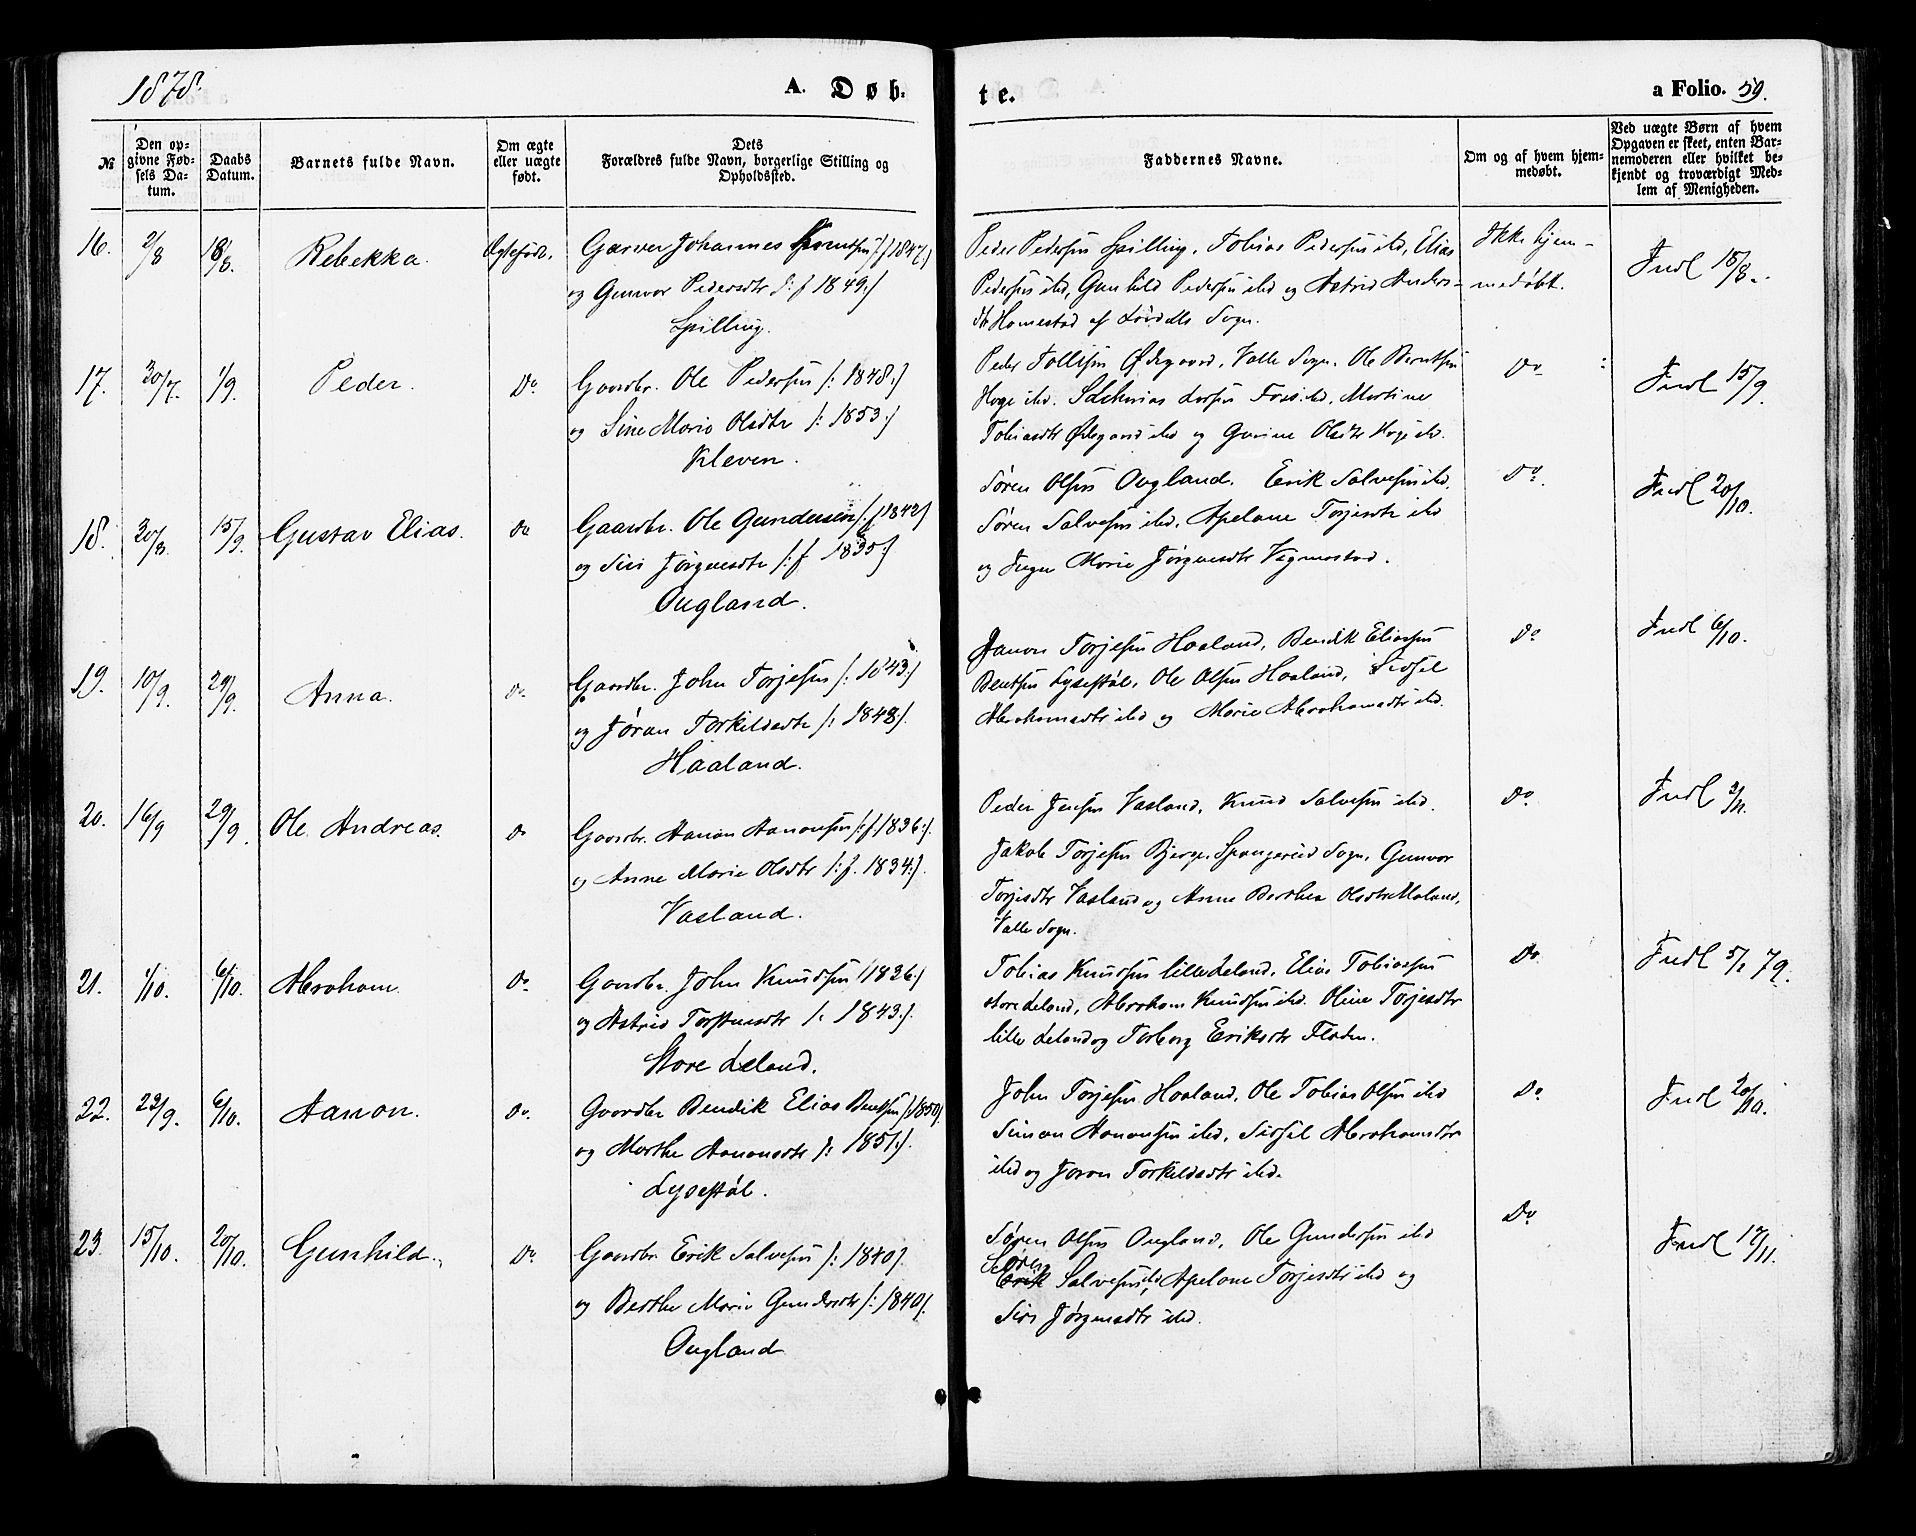 1878.
A. Døb-
te.
a Folio. 59.
№
Den op-
givne Fød-
sels Da-
tum.
Daabs
Datum.
Barnets fulde Navn.
Om ægte
eller uægte
født.
Dets
Forældres fulde Navn, borgerlige Stilling og
Opholdssted.
Faddernes Navne.
Om og af hvem hjem-
medøbt.
Ved uægte Børn af hvem
Opgaven er skeet, enten Bar-
nemoderen eller hvilket be-
kjendt og troværdigt Med-
lem af Menigheden.
16. 2/8 18/8. Rebekka. Ægtefød.
Garver Johannes /:f 1847:/
og Gunvor Pedersdtr /:f 1849:/
Spilling.
Peder Pedersen Spilling, Tobias Pedersen ibd, Elias
Pedersen ibd, Gunhild Pedersen ibd og Astrid Anders-
dtr Homestad af Sogn.
Ikke hjem-
medøbt.
Indl 18/8.
17. 30/7. 1/9. Peder. Do
Gaardbr. Ole Pedersen /: 1848:/
og Sine Marie Olsdtr /: 1853:/
Kleven.
Peder Tollefsen Ødegaard, Valle Sogn. Ole Berntsen
Hoge ibd. Larsen Foss ibd, Martine
Tobiasdtr Ødegaard ibd og Gurine Olsdtr Hoge ibd.
Do
Indl 15/9
18. 30/8. 15/9. Gustav Elias. Do
Gaardbr. Ole Gundersen /:f 1842/
og Siri Jørgensdtr /:f 1835:/
Ougland.
Søren Olsen Ougland. Erik Salvesen ibd.
Søren Salvesen ibd, Apelone Torjesdtr ibd
og Inger Marie Jørgensdtr Vigmostad.
Do.
Indl 20/10.
19. 10/9. 29/9. Anna. Do.
Gaardbr. John Torjesen /: 1843:/
og Jøran Torkildsdtr /: 1848:/.
Haaland.
Aanon Torjesen Haaland, Bendik Eliassen
Bentsen Lysestøl, Ole Olsen Haaland, Sidsel
Abrahamsdtr ibd og Marie Abrahamsdtr ibd.
Do
Indl 6/10.
20. 16/9 29/9. Ole Andreas. Do
Gaardbr. Aanon Aanonsen /:f 1836:/.
og Anne Marie Olsdtr /:f. 1834:/.
Vasland.
Peder Jensen Vasland, Knud Salvesen ibd.
Jakob Torjesen Bjerge, Spangereid Sogn, Gunvor
Torjesdtr Vasland og Anne Berthea Olsdtr Maland,
Valle Sogn.
Do.
Indl 3/11.
21. 1/10. 6/10. Abraham. Do.
Gaardbr. John Knudsen /1836:/
og Astrid Torstensdtr /: 1843:/.
Store Leland.
Tobias Knudsen lille Leland, Elias Tobiassen
store Leland, Abraham Knudsen ibd. Oline Torjesdtr
lille Leland og Torborg Eriksdtr Floden.
Do.
Indl 5/1 79.
22. 22/9. 6/10. Aanon. Do.
Gaardbr Bendik Elias Bentsen /:1850/.
og Marthe Aanonsdtr /: 1851:/.
Lysestøl.
John Torjesen Haaland, Ole Tobias Olsen ibd
Simon Aanonsen ibd, Sidsel Abrahamsdtr
ibd og Jøran Torkildsdtr ibd.
Do
Indl 20/10.
23. 15/10. 20/10. Gunhild. Do
Gaardbr Erik Salvesen /: 1840/.
og Berthe Marie Gundersdtr /: 1840/.
Ougland
Søren Olsen Ougland, Ole Gundersen ibd
Søren
Erik Salvesen ibd, Apelone Torjesdtr ibd og
Siri Jørgensdtr ibd.
Do
Indl 17/11.